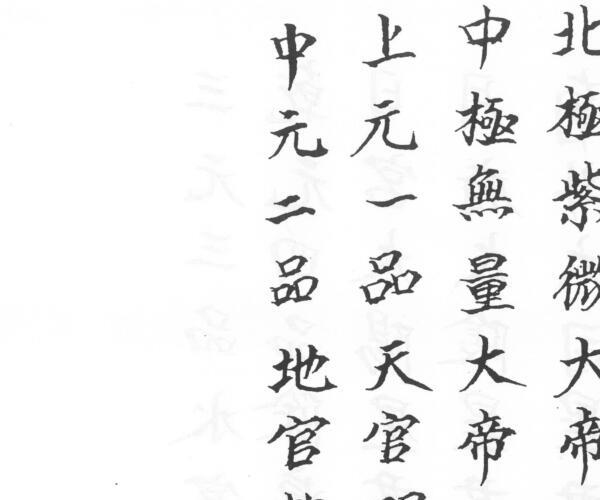 北極紫微大帝
中極無量大帝
上元一品天官
中元二品地官